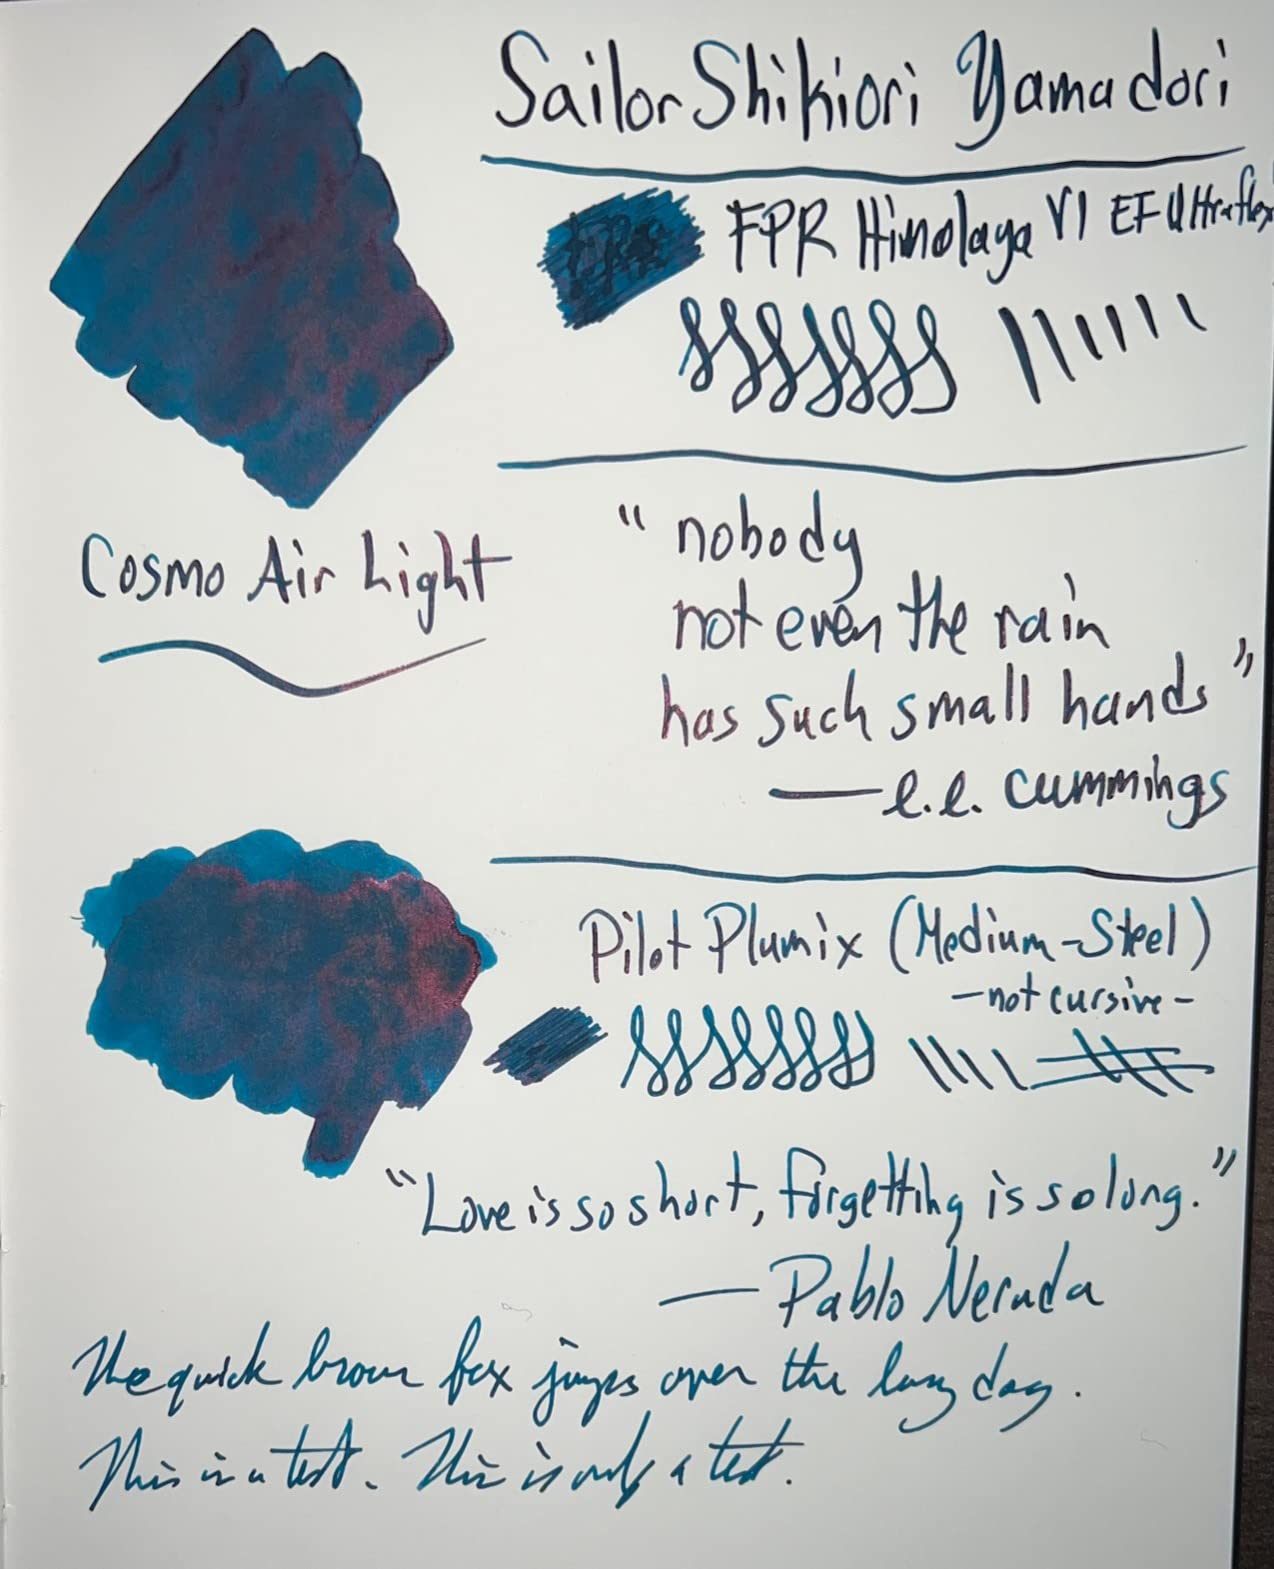 Sailor Shikiori Yamadori
FPR Himalaya V1 EF Ultraflex
Cosmo Air Light
"nobody
not even the rain
has such small hands"
— e.e. cummings
Pilot Plumix (Medium-Steel)
- not cursive -
"Love is so short, forgetting is so long."
— Pablo Neruda
The quick brown fox jumps over the lazy dog.
This is a test. This is only a test.